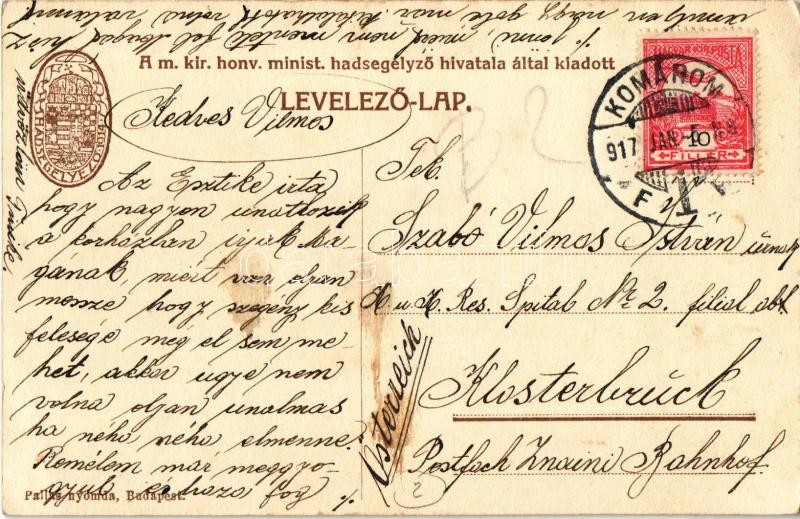 A m. kir. honv. minist. hadsegélyző hivatala által kiadott
LEVELEZŐ-LAP.
HADSEGÉLYEZŐ 1914
KOMÁROM
917 JAN
F
10
FILLÉR
T
Kedves Vilmos
Az Esztike irta
hogy nagyon unatkozik
a korházban irjak ma
gának, miért van oljan
messze hogy szegeny kis
felesege még el sem me
het, akkor ugye nem
volna oljan unalmas
ha néha néha elmenne.
Remélem már meggyo
gyul és haza fog
./.
Tek.
Szabó Vilmos István úrnak
K. u. K. Res. Spital Nr 2. filial abt
Klosterbruck
Postfach Znaimi Bahnhof.
Österreich
B2
2
Pallas nyomda, Budapest.